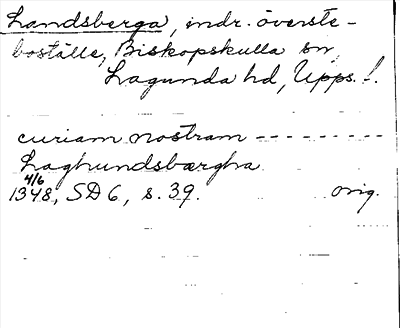 Landsberga, indr. överste-
boställe, Biskopskulla sn,
Lagunda hd, Upps. l.
curiam nostram ---------
Laghundsbærgha
4/6
1348, SD 6, s. 39. orig.